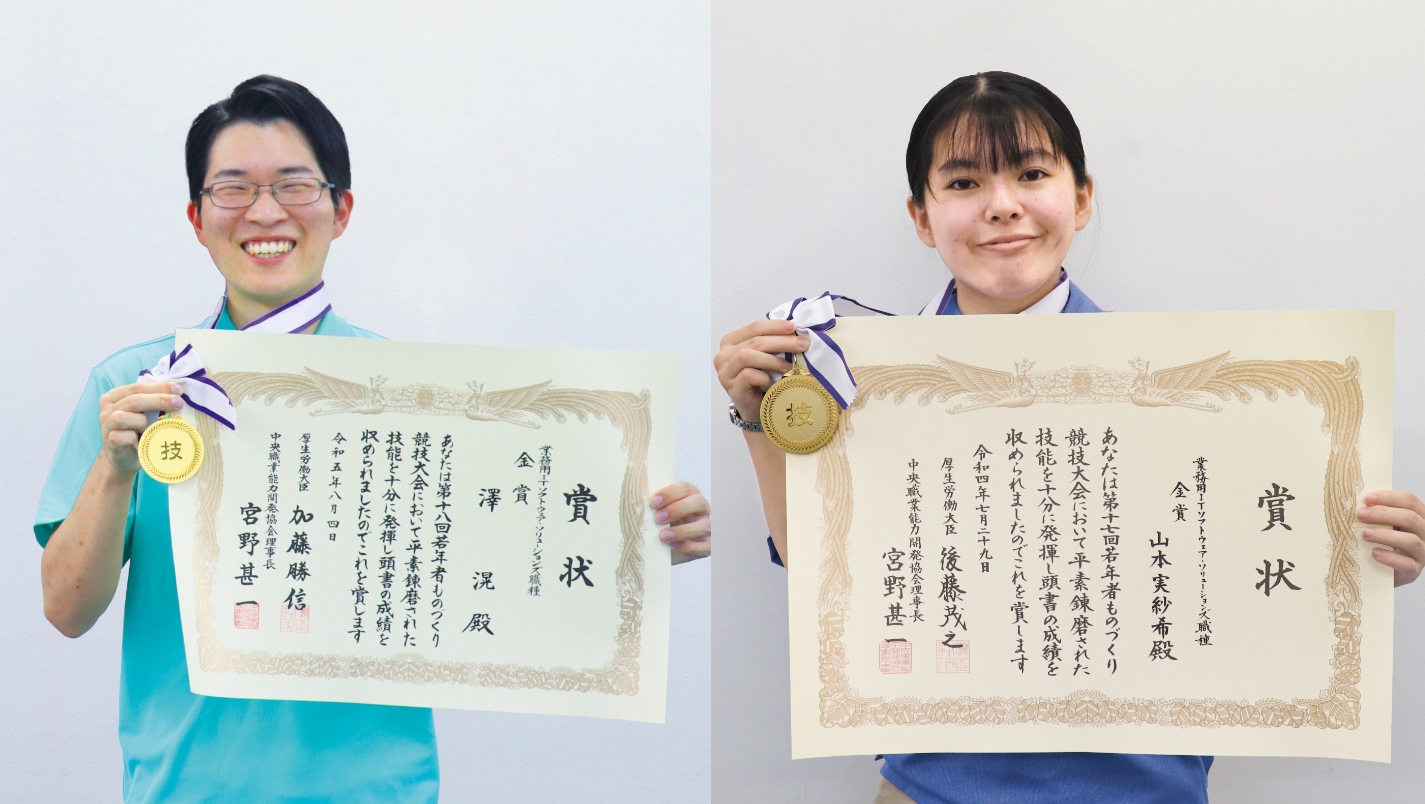 賞状
業務用ITソフトウェア・ソリューションズ職種
金賞
澤 滉 殿
あなたは第十八回若年者ものづくり
競技大会において平素錬磨された
技能を十分に発揮し頭書の成績を
収められましたのでこれを賞します
令和五年八月四日
厚生労働大臣 加藤勝信
中央職業能力開発協会理事長
宮野甚一
技
賞状
業務用ITソフトウェア・ソリューションズ職種
金賞
山本実紗希殿
あなたは第十七回若年者ものづくり
競技大会において平素錬磨された
技能を十分に発揮し頭書の成績を
収められましたのでこれを賞します
令和四年七月二十九日
厚生労働大臣 後藤茂之
中央職業能力開発協会理事長
宮野甚一
技